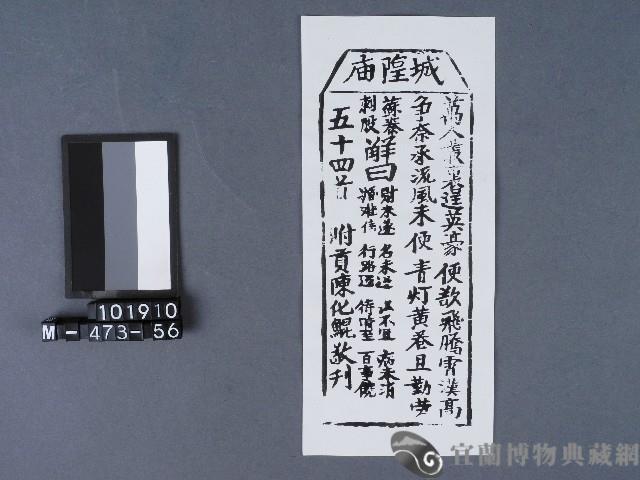 城隍庙
萬人叢裏逞英豪 便欲飛騰霄漢高
争奈承流風未便 青灯黄卷且勤劳
蘇秦刺股
解曰
財未遂 名未 不宜 病未消
婚难信 行路遥 待時至 百事饒
五十四首 附貢陳化鯤敬刊
101910
M-473-56
宜蘭博物典藏網